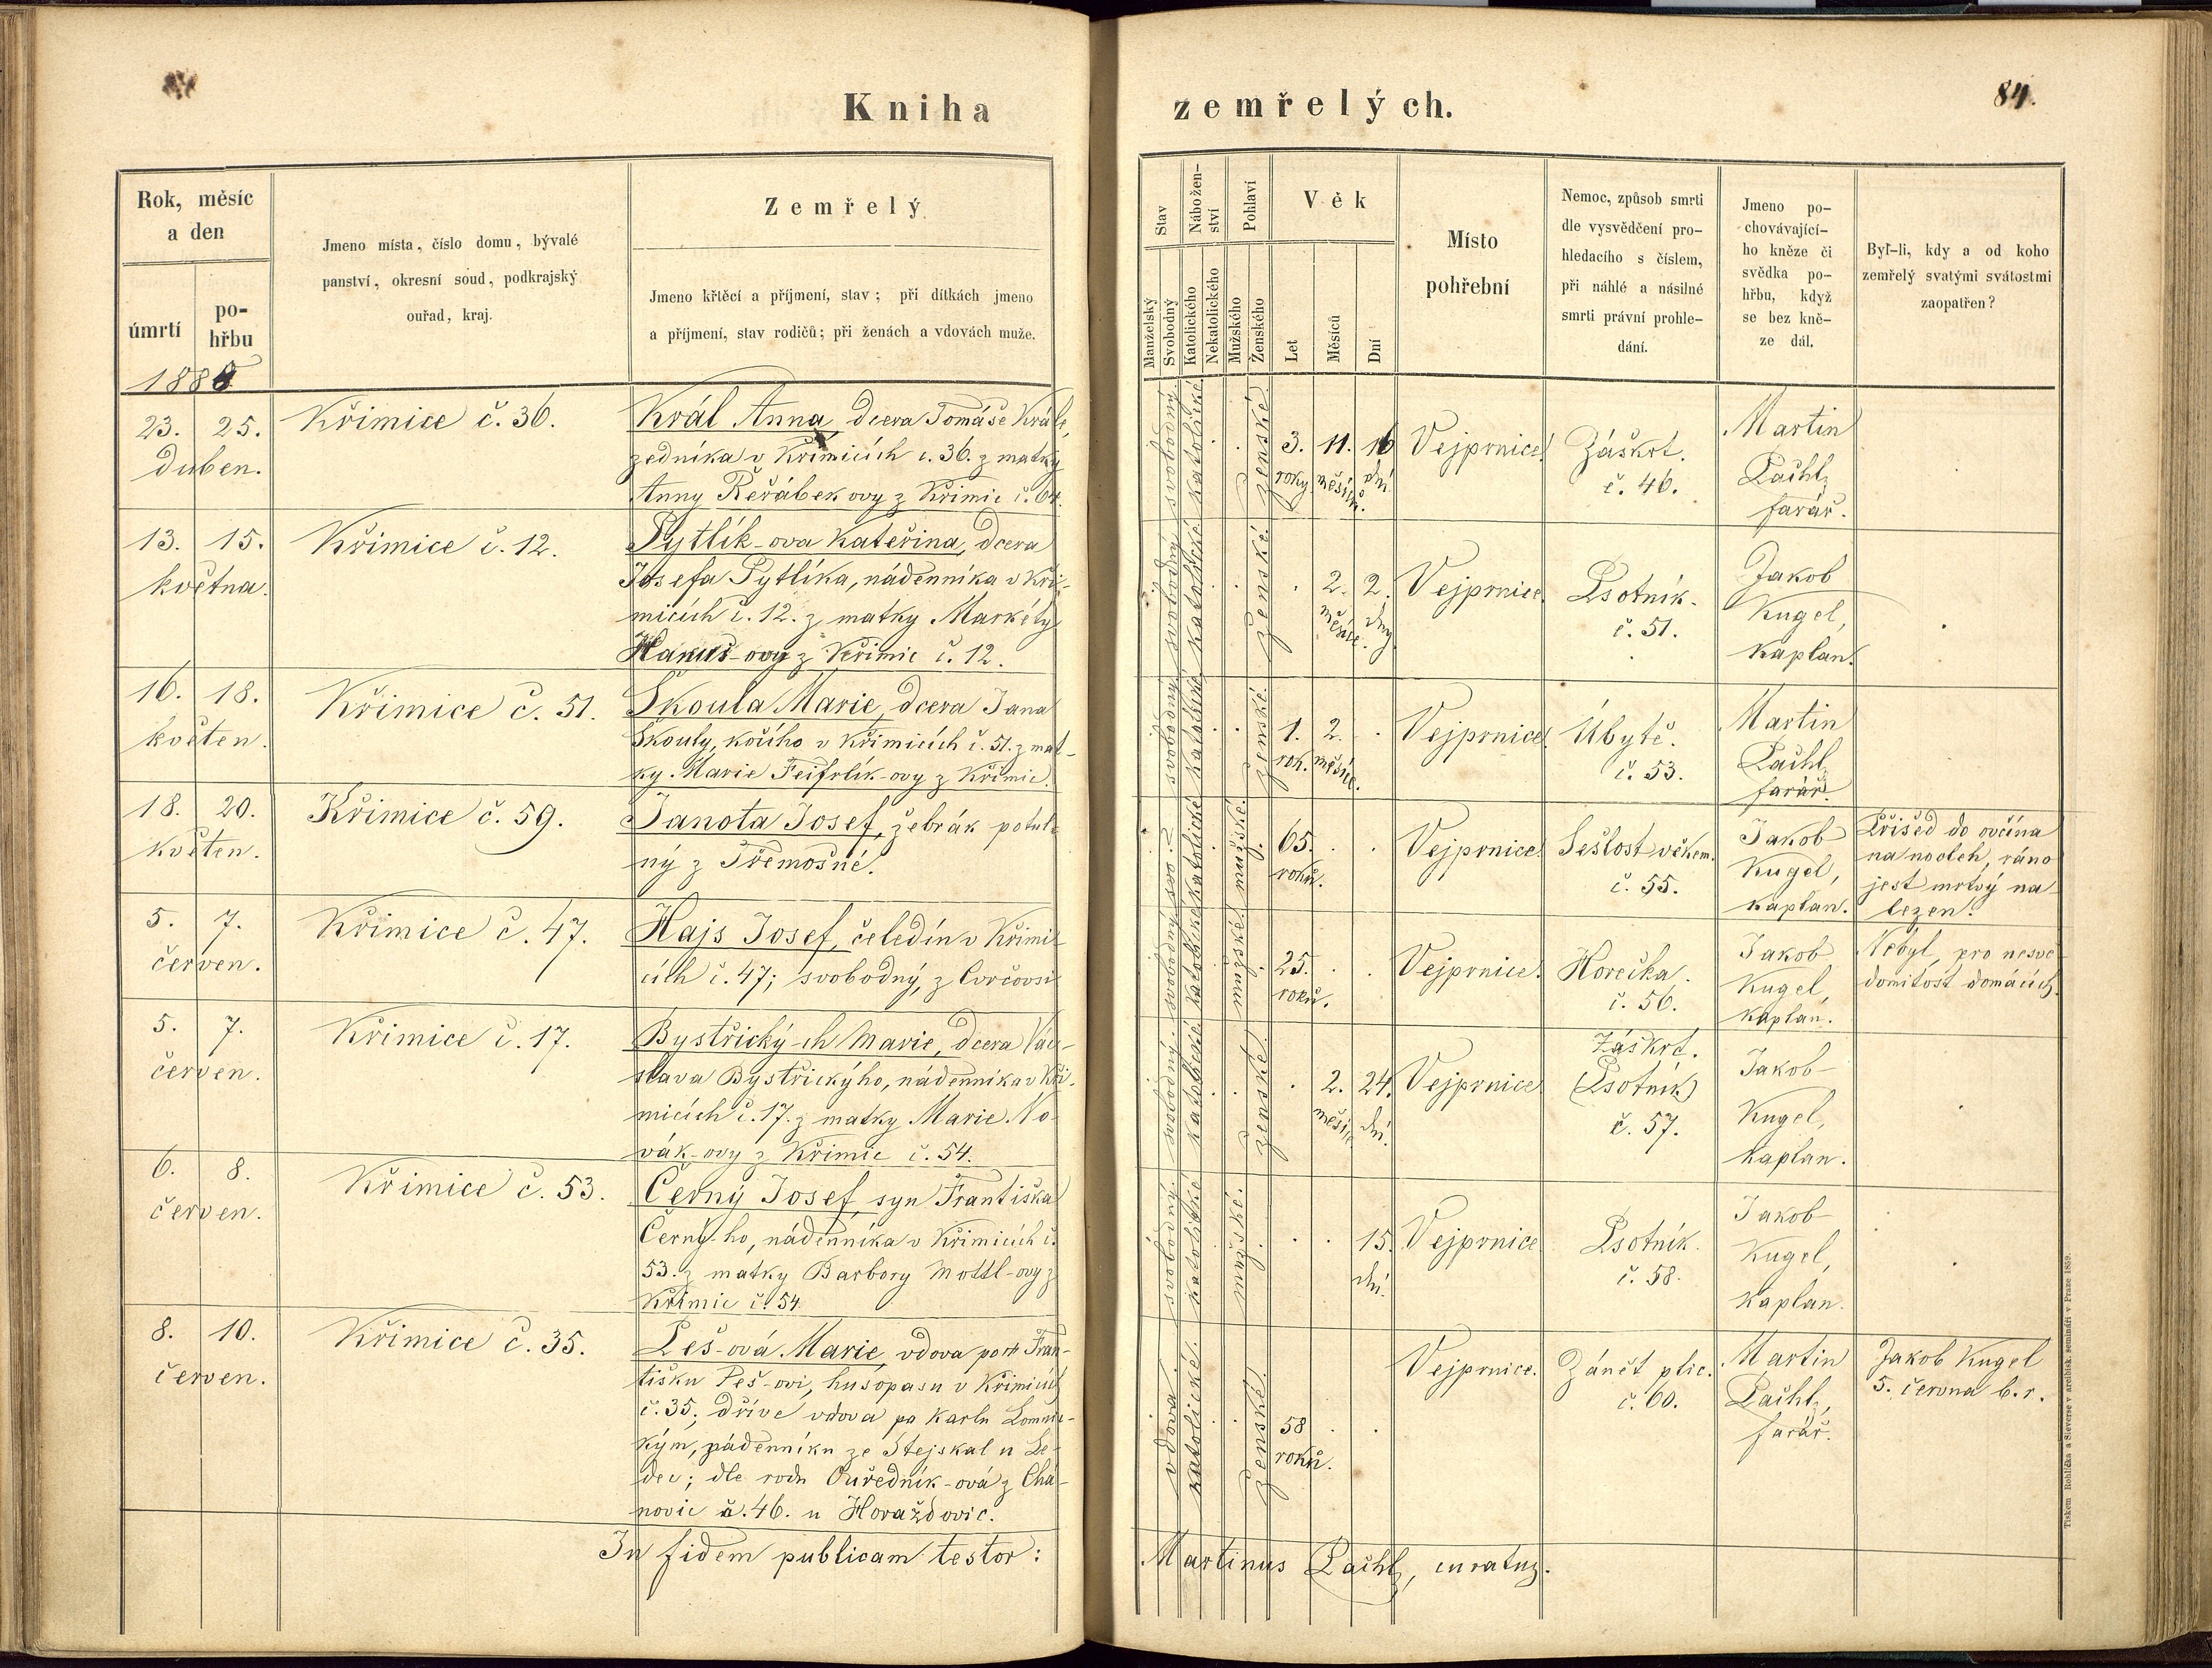 Kniha zemřelých.
84.
Rok, měsíc
a den
úmrtí
po-
hřbu
Jmeno místa, číslo domu, bývalé
panství, okresní soud, podkrajský
ouřad, kraj.
Zemřelý
Jmeno křtěcí a příjmení, stav; při dítkách jmeno
a příjmení, stav rodičů; při ženách a vdovách muže.
Stav
Manželský
Svobodný
Nábožen-
ství
Katolického
Nekatolického
Pohlaví
Mužského
Ženského
Věk
Let
Měsíců
Dní
Místo
pohřební
Nemoc, způsob smrti
dle vysvědčení pro-
hledacího s číslem,
při náhlé a násilné
smrti právní prohle-
dání.
Jmeno po-
chovávající-
ho kněze či
svědka po-
hřbu, když
se bez kně-
ze dál.
Byl-li, kdy a od koho
zemřelý svatými svátostmi
zaopatřen?
23. 25.
duben.
Křimice č. 36.
Král Anna, dcera Tomáše Krále,
zedníka v Křimicích č. 36. z matky
Anny Řeřábek ovy z Křimic č. 64.
svobodný
katolické
ženské.
3. 11. 16
roky měsíců. dní
Vejprnice.
Záškrt.
č. 46.
Martin
Pachl,
farář.
13. 15.
května.
Křimice č. 12.
Pytlík-ova Kateřina, dcera
Josefa Pytlíka, nádenníka v Kři-
micích č. 12. z matky Markéty
Hanuš-ovy z Křimic č. 12.
svobodný
katolické
ženské.
2. 2.
měsíce. dny
Vejprnice.
Psotník.
č. 51.
Jakob
Kugel,
kaplan.
16. 18.
květen.
Křimice č. 51.
Škoula Marie, dcera Jana
Škouly, kočího v Křimicích č. 51. z mat-
ky Marie Feifrlík-ovy z Křimic.
svobodný
katolické
ženské.
1. 2.
rok. měsíce.
Vejprnice.
Úbytě.
č. 53.
Martin
Pachl,
farář.
18. 20.
květen.
Křimice č. 59.
Janota Josef, žebrák potul-
ný z Třemošné.
katolické
mužské.
65.
roků.
Vejprnice.
Sešlost věkem.
č. 55.
Jakob
Kugel,
kaplan.
Přišed do ovčína
na nocleh, ráno
jest mrtvý na
lezen.
5. 7.
červen.
Křimice č. 47.
Hajs Josef, čeledín v Křimi-
cích č. 47; svobodný, z
svobodný
katolické
mužské.
25.
roků.
Vejprnice.
Horečka.
č. 56.
Jakob
Kugel
kaplan.
Nebyl, pro nesvě-
domitost domácích.
5. 7.
červen.
Křimice č. 17.
Bystřický-ch Marie, dcera Vác-
slava Bystřickýho, nádenníka v Kři-
micích č. 17. z matky Marie No-
vák-ovy z Křimic č. 54.
svobodný.
katolické
ženské.
2. 24.
měsíce dní.
Vejprnice.
Záškrt.
(Psotník)
č. 57.
Jakob
Kugel,
kaplan.
6. 8.
červen.
Křimice č. 53.
Černý Josef, syn Františka
Černý-ho, nádenníka v Křimicích č.
53. z matky Barbory Mottl-ovy z
Křimic č. 54.
svobodný.
katolické
mužské.
15.
dní.
Vejprnice
Psotník.
č. 58.
Jakob
Kugel,
kaplan.
8. 10.
červen.
Křimice č. 35.
Peš-ová Marie, vdova po Fran-
tišku Peš-ovi, husopasu v Křimicích
č. 35; dříve vdova po Karlu Lomnic-
kým, nádenníku ze Stejskal u Le-
dec; dle rodu Ouředník-ová z Cha-
novic č. 46. u Horažďovic.
vdova.
katolické.
ženské.
58
roků.
Vejprnice.
Zánět plic.
č. 60.
Martin
Pachl,
farář.
Jakob Kugel
5. června b. r.
In fidem publicam testor: Martinus Pachl, curatus.
Tiskem Rohlíčka a Sieverse v arcibisk. semináři v Praze 1859.